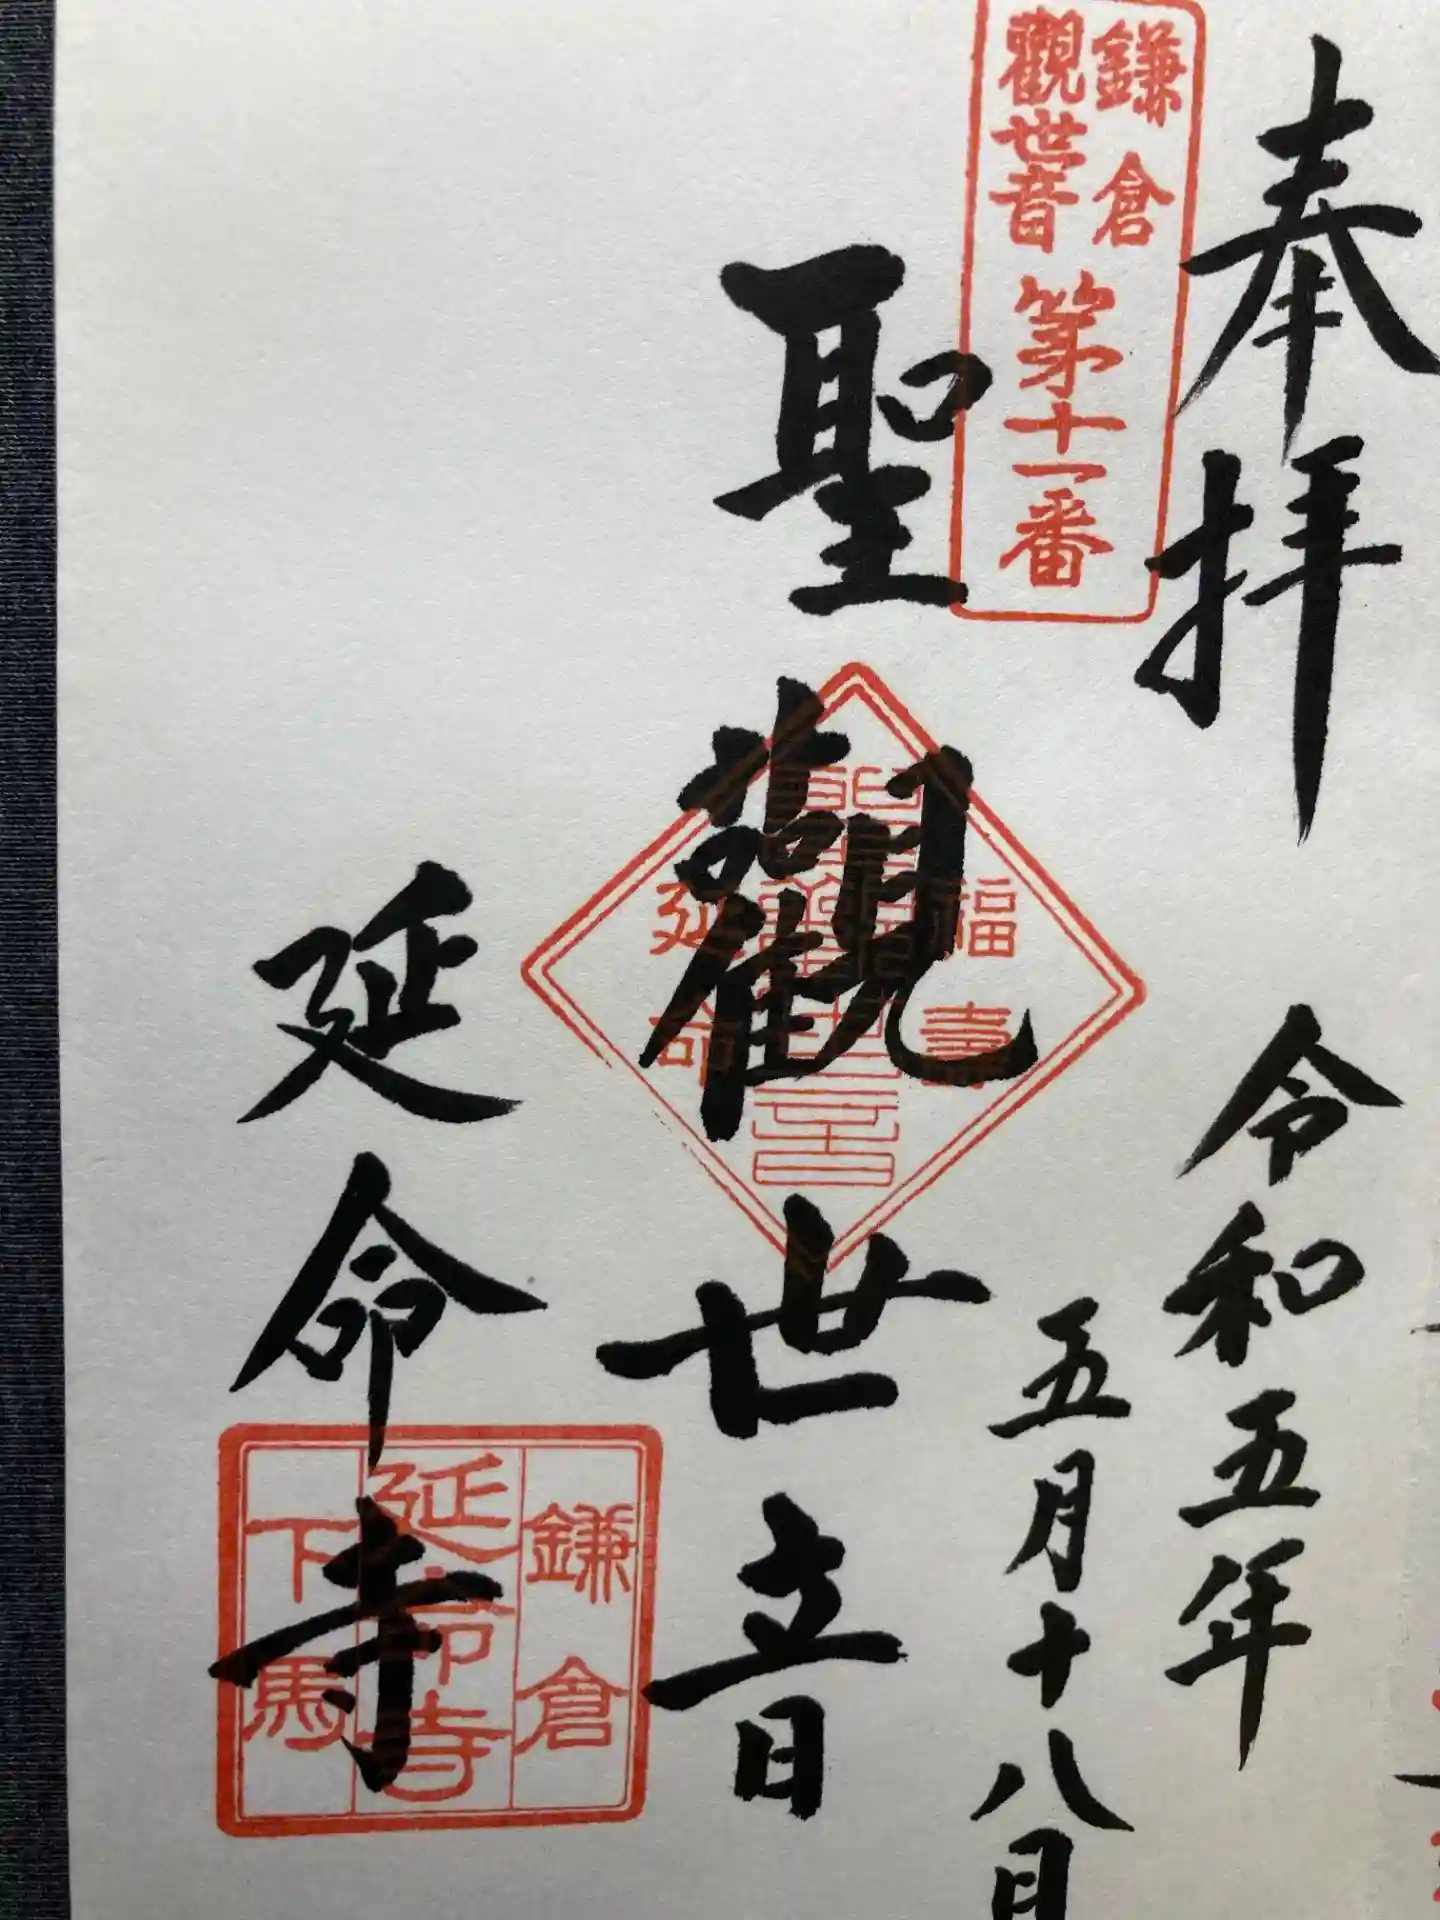 奉拝
令和五年
五月十八日
鎌倉
觀世音
第十一番
聖觀世音
福壽
聖觀世音
延命
延命寺
鎌倉
延命寺
下馬